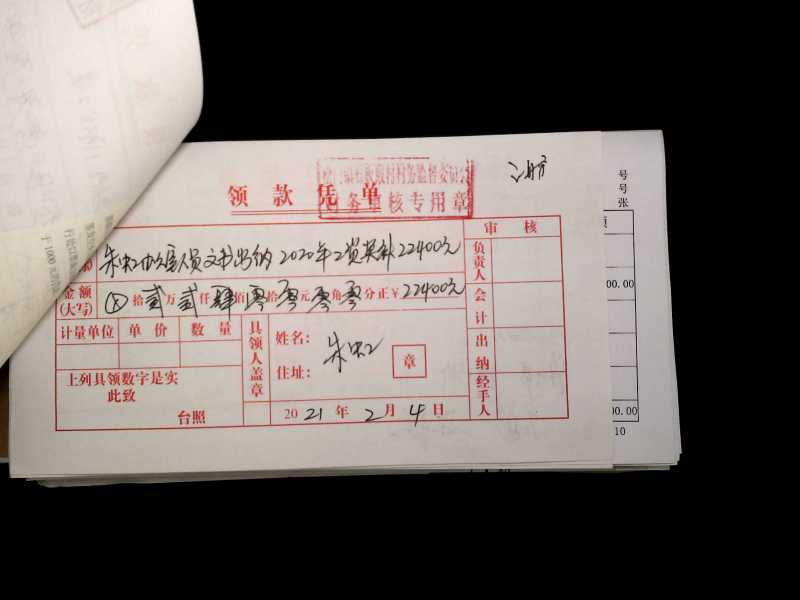 领款凭单
务监督委员会
财务审核专用章
审 核
朱虹 人员文书出纳2020年工资奖补22400元
负责人
金额
(大写)
⊗拾贰万贰仟肆佰零拾零元零角零分正¥22400元
会计
计量单位 单价 数量
具领人盖章
姓名: 朱虹
住址:
章
出纳
上列具领数字是实
此致
台照
2021年2月4日
经手人
号
号
张
00.00
00.00
10